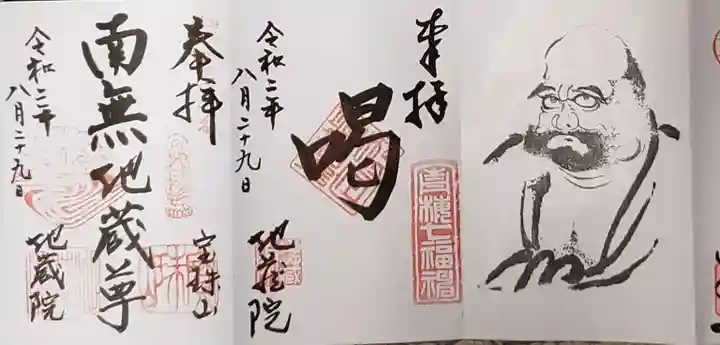 奉拝
宝珠山
南無地蔵尊
令和二年
八月二十九日
地蔵院
奉拝
喝
令和二年
八月二十九日
地蔵院